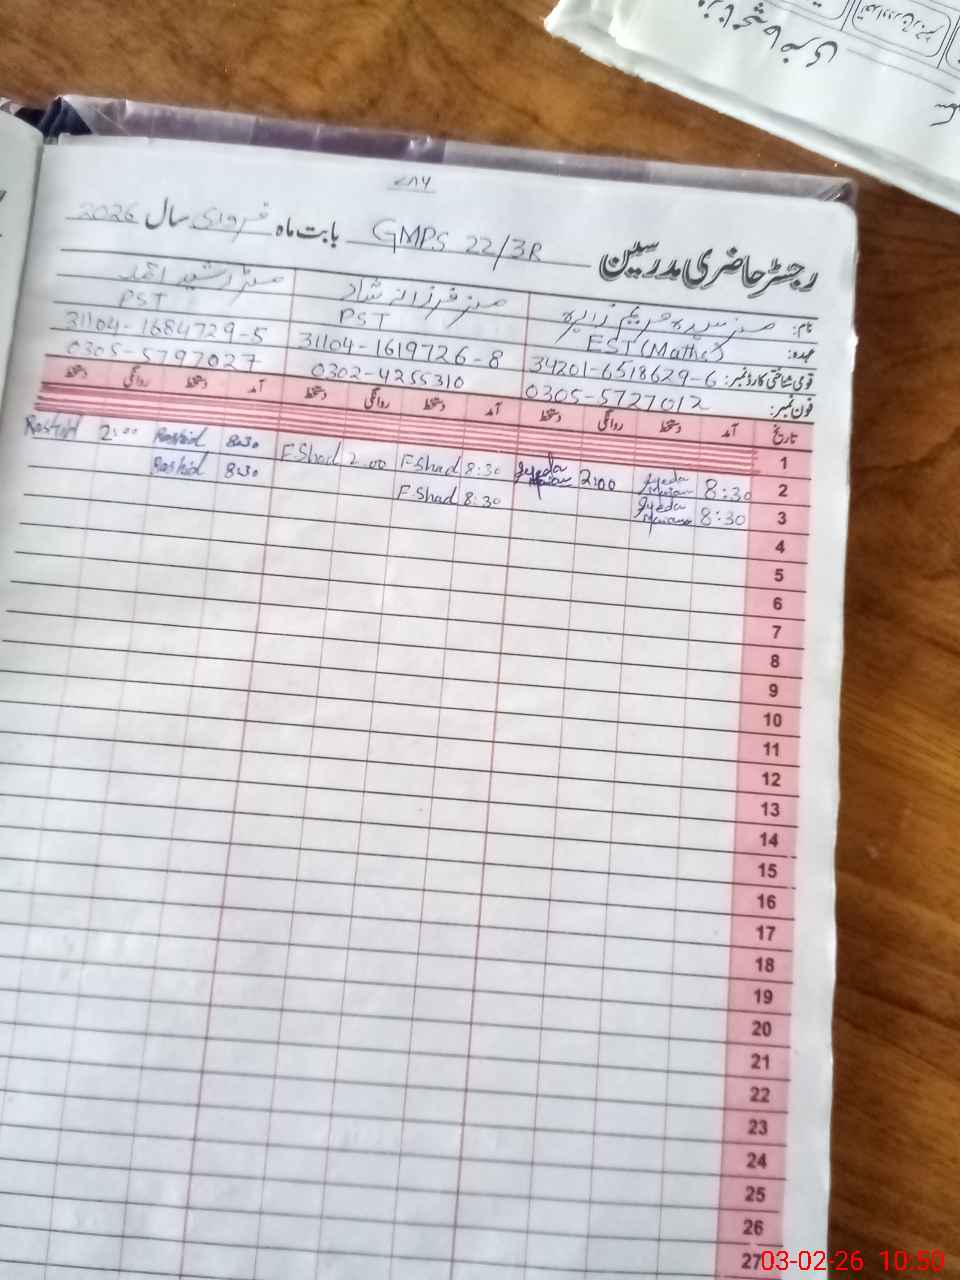 ۷۸۶
رجسٹر حاضری مدرسین GMPS 22/3R بابت ماہ فروری سال 2026
نام: مسز سیدہ مریم زاہرہ مسز فرزانہ شاد مسٹر رشید احمد
عہدہ: EST (Maths) PST PST
قومی شناختی کارڈ نمبر: 34201-6518629-6 31104-1619726-8 31104-1684729-5
فون نمبر: 0305-5727012 0302-4255310 0305-5797027
تاریخ آمد دستخط روانگی دستخط آمد دستخط روانگی دستخط آمد دستخط روانگی دستخط
1
2 8:30 Syeda Mariam 2:00 Syeda Mariam 8:30 FShad 2.00 FShad 8:30 Rashid 2:00 Rashid
3 8:30 Syeda Mariam 8:30 FShad 8:30 Rashid
4
5
6
7
8
9
10
11
12
13
14
15
16
17
18
19
20
21
22
23
24
25
26
27
03-02-26 10:50